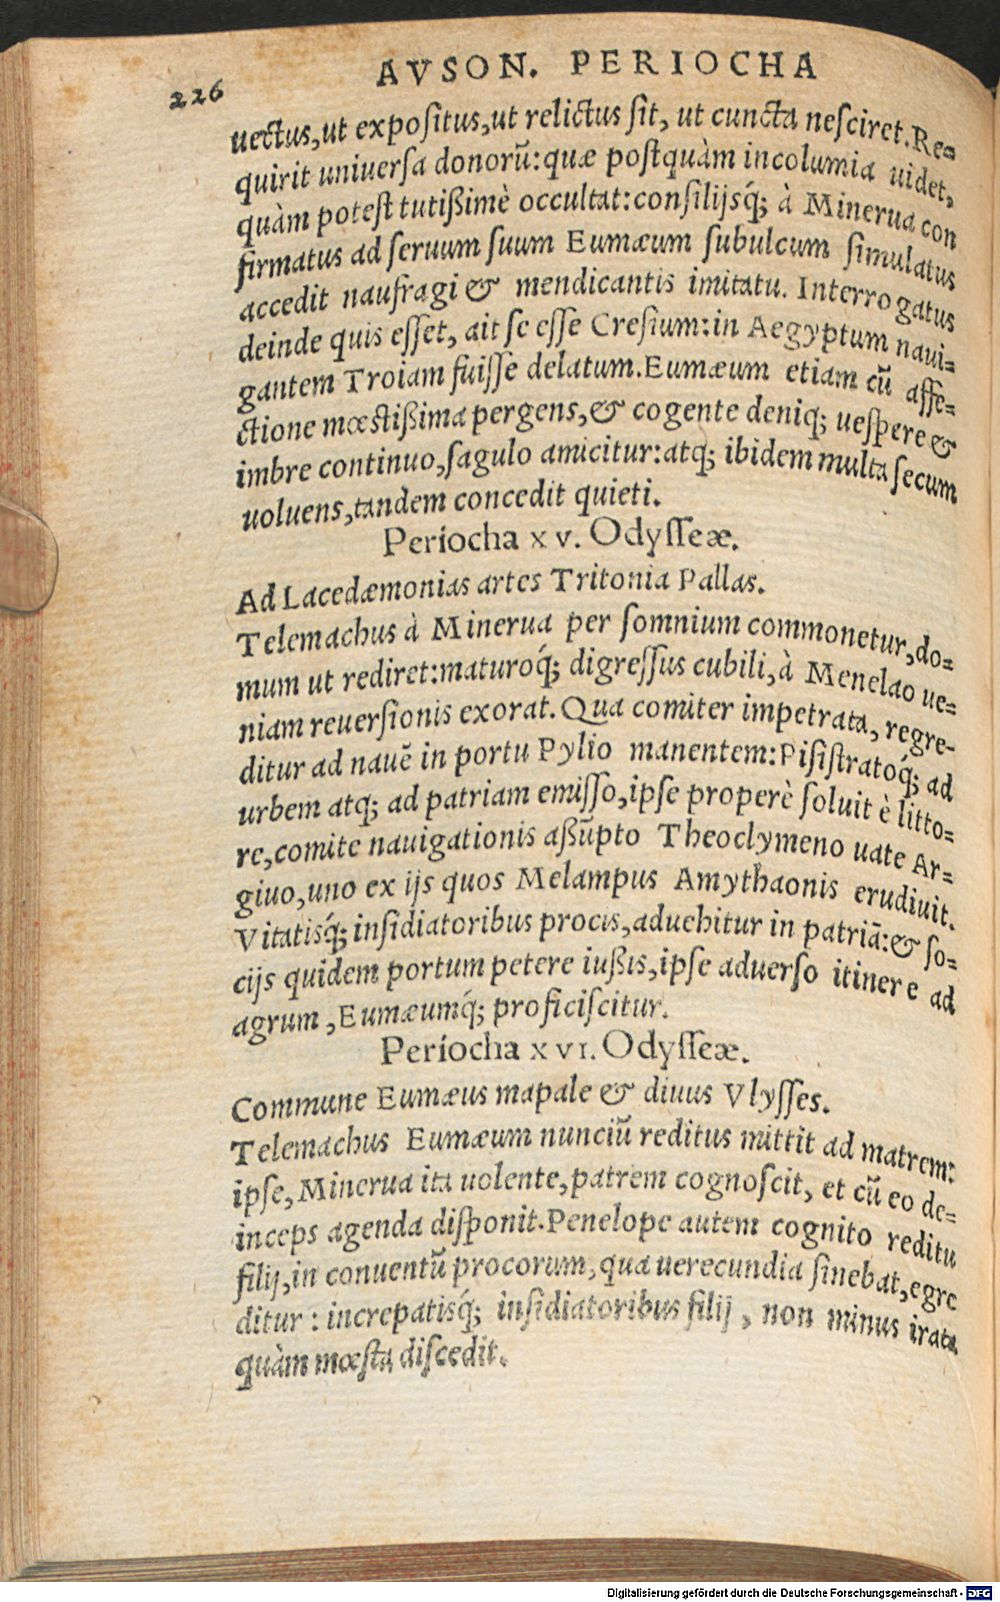 226
AVSON. PERIOCHA
uectus,ut expoſitus,ut relictus ſit, ut cuncta neſciret.Re=
quirit uniuerſa donorū:quæ poſtquàm incolumia uidet,
quàm poteſt tutißimè occultat:conſilijsq́; à Minerua con
firmatus ad ſeruum ſuum Eumæum ſubulcum ſimulatus
accedit naufragi & mendicantis imitatu. Interrogatus
deinde quis eſſet, ait ſe eſſe Creſium:in Aegyptum naui=
gantem Troiam fuiſſe delatum.Eumæum etiam cū affe=
ctione mœstißima pergens,& cogente deniq; ueſpere &
imbre continuo,ſagulo amicitur:atq; ibidem multa ſecum
uoluens,tandem concedit quieti.
Periocha xv. Odyſſeæ.
Ad Lacedæmonias artes Tritonia Pallas.
Telemachus à Minerua per ſomnium commonetur,do=
mum ut rediret:maturoq́; digreſſus cubili,à Menelao ue=
niam reuerſionis exorat.Qua comiter impetrata, regre-
ditur ad nauē in portu Pylio manentem:Piſiſtratoq́; ad
urbem atq; ad patriam emiſſo,ipſe properè ſoluit è litto=
re,comite nauigationis aßūpto Theoclymeno uate Ar=
giuo,uno ex ijs quos Melampus Amythaonis erudiuit.
Vitatisq́; inſidiatoribus procis,aduehitur in patriā:& ſo=
cijs quidem portum petere iußis,ipſe aduerſo itinere ad
agrum ,Eumæumq́; proficiſcitur.
Periocha xvi. Odyſſeæ.
Commune Eumæus mapale & diuus Vlyſſes.
Telemachus Eumæum nunciū reditus mittit ad matrem:
ipſe,Minerua ita uolente,patrem cognoſcit, et cū eo de=
inceps agenda diſponit.Penelope autem cognito reditu
filij,in conuentū procorum,qua uerecundia ſinebat,egre
ditur : increpatisq́; inſidiatoribus filij , non minus irata
quàm mœſta diſcedit.
Digitalisierung gefördert durch die Deutsche Forschungsgemeinschaft - DFG